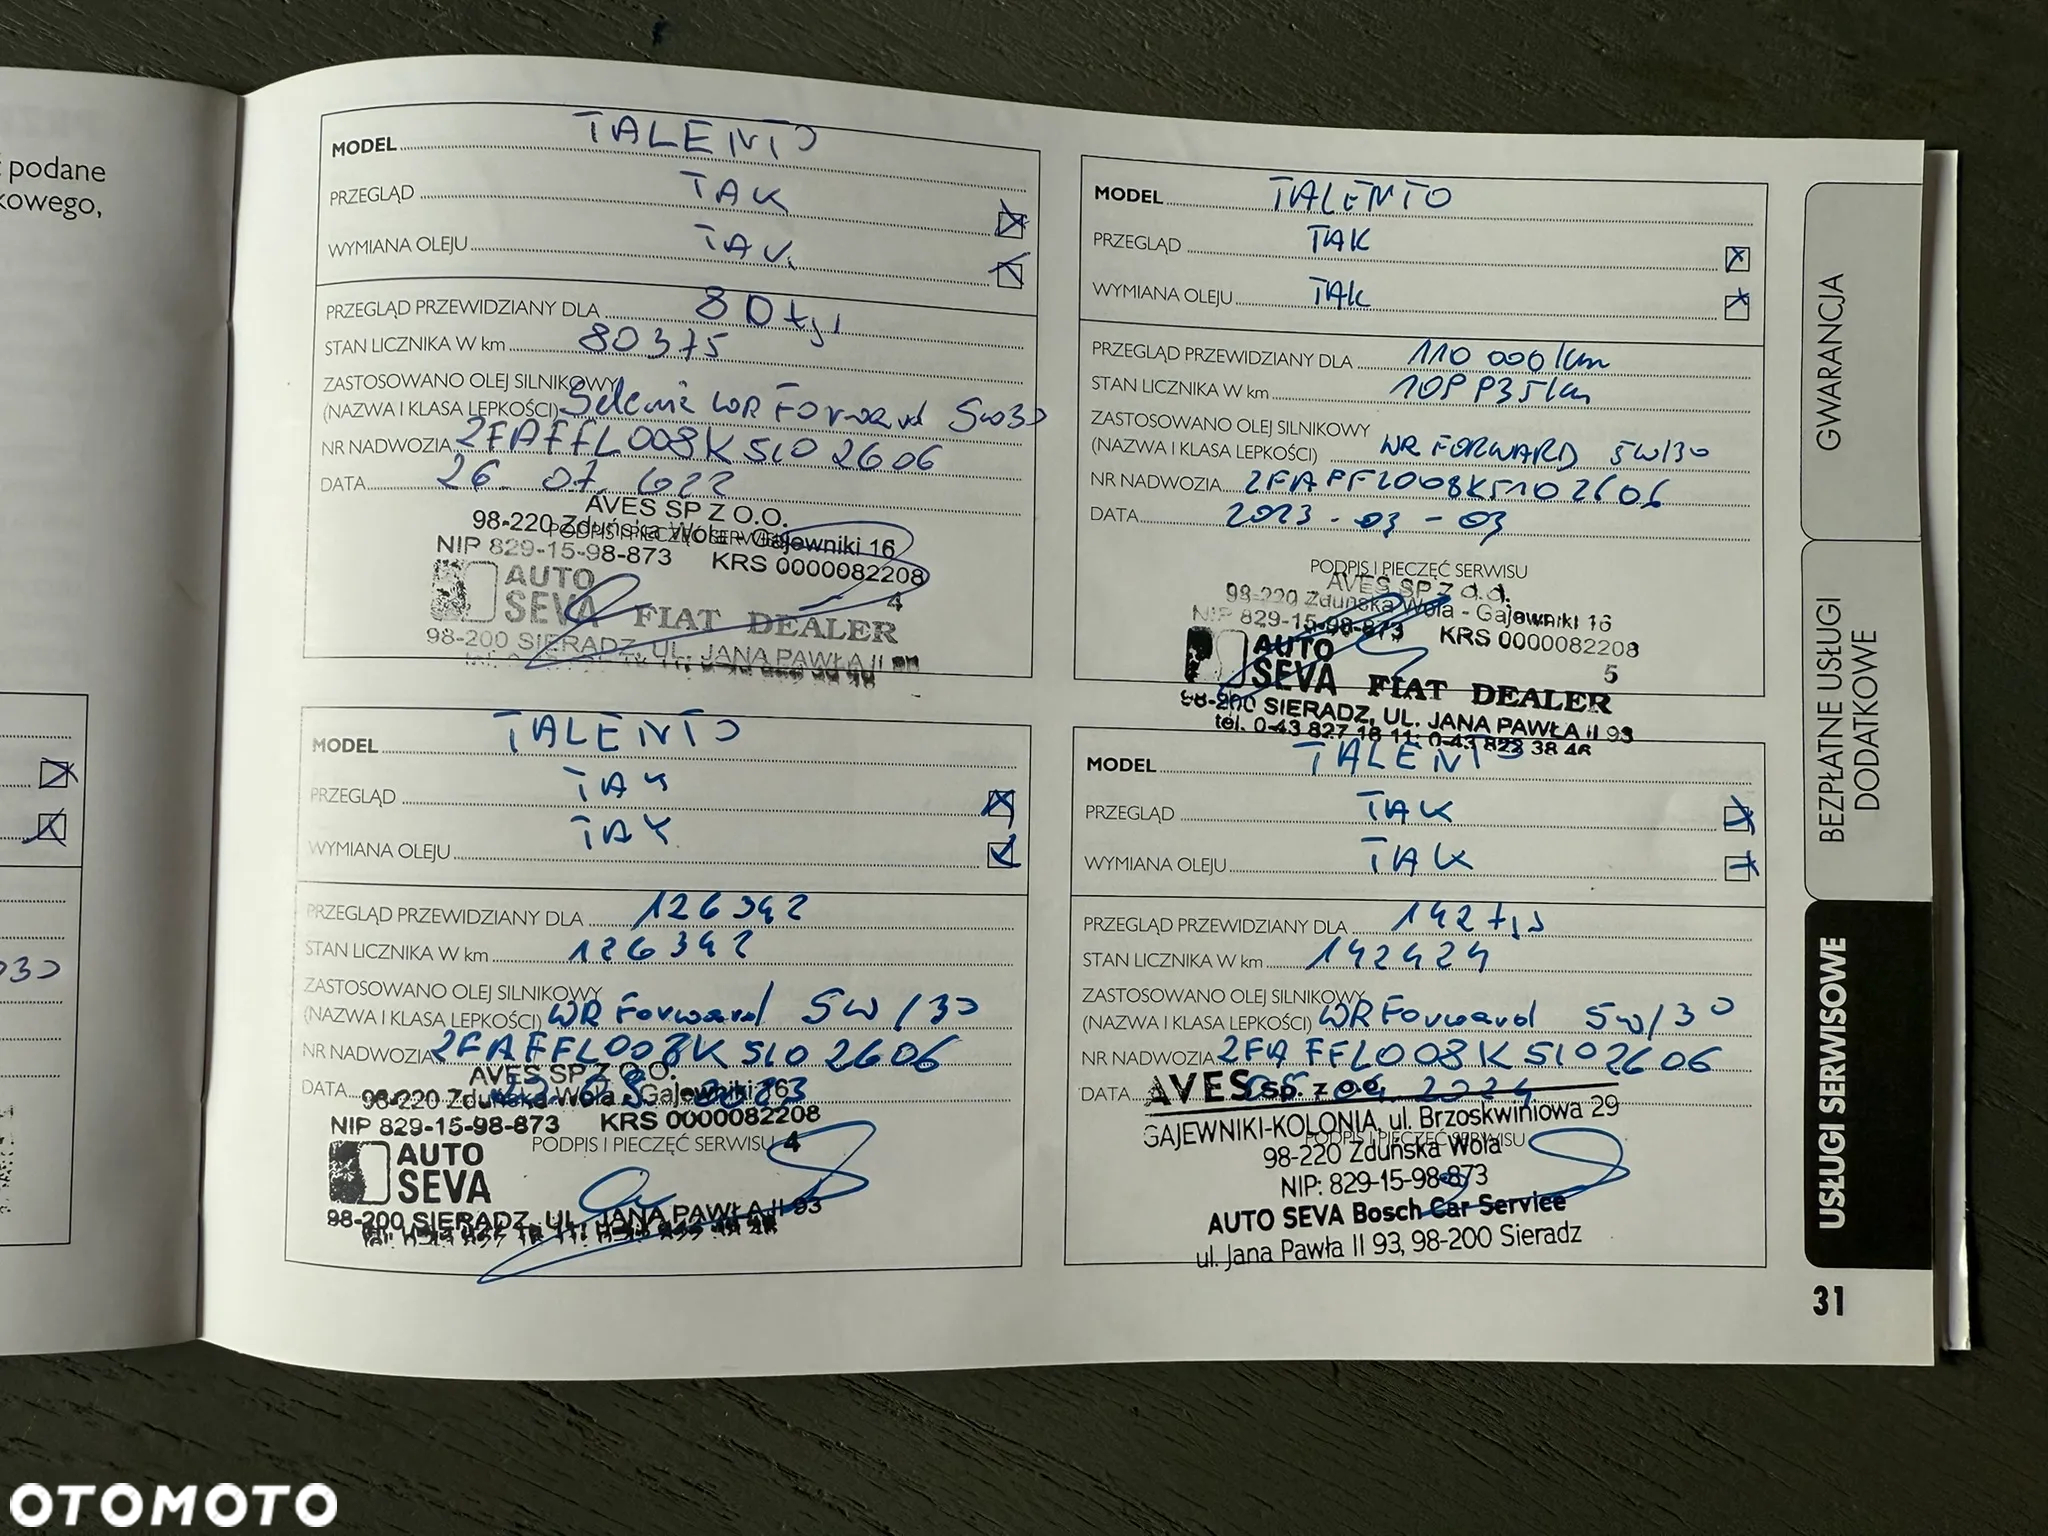 podane
kowego,
MODEL TALENTO
PRZEGLĄD TAK
WYMIANA OLEJU TAK
PRZEGLĄD PRZEWIDZIANY DLA 80 tyś
STAN LICZNIKA W km 80375
ZASTOSOWANO OLEJ SILNIKOWY
(NAZWA I KLASA LEPKOŚCI) Selenia WR Forward 5w30
NR NADWOZIA 2FAFFL008K5102606
DATA 26.07.
AVES SP Z O.O.
98-220 Zduńska Wola - Gajewniki 16
PODPIS I PIECZĘĆ SERWISU
NIP 829-15-98-873 KRS 0000082208
4
AUTO
SEVA FIAT DEALER
98-200 SIERADZ, UL. JANA PAWŁA II
MODEL TALENTO
PRZEGLĄD TAK
WYMIANA OLEJU TAK
PRZEGLĄD PRZEWIDZIANY DLA 110 000 km
STAN LICZNIKA W km 109 935 km
ZASTOSOWANO OLEJ SILNIKOWY
(NAZWA I KLASA LEPKOŚCI) WR FORWARD 5W/30
NR NADWOZIA 2FAFFL008K5102606
DATA 2023-03-03
PODPIS I PIECZĘĆ SERWISU
AVES SP Z o.o.
98-220 Zduńska Wola - Gajewniki 16
NIP 829-15-98-873 KRS 0000082208
5
AUTO
SEVA FIAT DEALER
98-200 SIERADZ, UL. JANA PAWŁA II 93
tel. 0-43 827 18 11; 0-43 822 38 46
MODEL TALENTO
PRZEGLĄD TAK
WYMIANA OLEJU TAK
PRZEGLĄD PRZEWIDZIANY DLA 126342
STAN LICZNIKA W km 126342
ZASTOSOWANO OLEJ SILNIKOWY
(NAZWA I KLASA LEPKOŚCI) WR Forward 5w/30
NR NADWOZIA 2FAFFL008K5102606
AVES SP Z O.O.
DATA
98-220 Zduńska Wola - Gajewniki 16
NIP 829-15-98-873 KRS 0000082208
PODPIS I PIECZĘĆ SERWISU 4
AUTO
SEVA
98-200 SIERADZ, UL. JANA PAWŁA II 93
MODEL TALENTO
PRZEGLĄD TAK
WYMIANA OLEJU TAK
PRZEGLĄD PRZEWIDZIANY DLA 142 tyś
STAN LICZNIKA W km 142424
ZASTOSOWANO OLEJ SILNIKOWY
(NAZWA I KLASA LEPKOŚCI) WR Forward 5w/30
NR NADWOZIA 2FAFFL008K5102606
DATA 2024
AVES sp. z o.o.
GAJEWNIKI-KOLONIA, ul. Brzoskwiniowa 29
PODPIS I PIECZĘĆ SERWISU
98-220 Zduńska Wola
NIP: 829-15-98-873
AUTO SEVA Bosch Car Service
ul. Jana Pawła II 93, 98-200 Sieradz
GWARANCJA
BEZPŁATNE USŁUGI
DODATKOWE
USŁUGI SERWISOWE
31
OTOMOTO